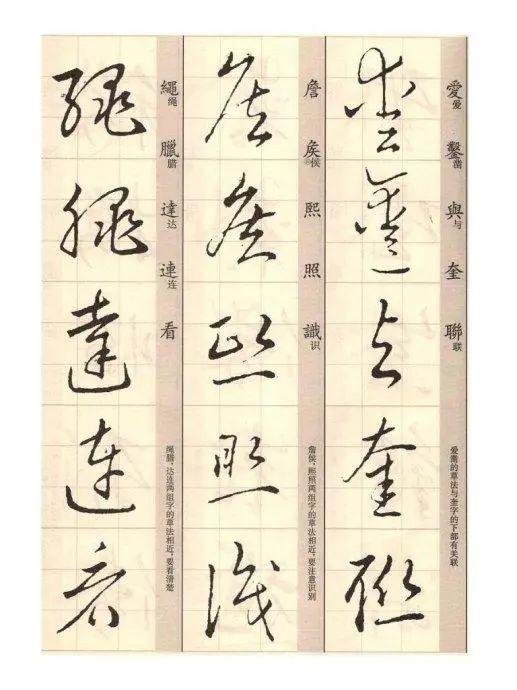 愛爱 鑿凿 與与 奎 聯联
爱凿的草法与奎字的下部有关联
愛鑿與奎聯
詹 矦侯 熙 照 識识
詹侯，熙照两组字的草法相近，要注意识别
詹矦熙照識
繩绳 臘腊 達达 連连 看
绳腊，达连两组字的草法相近，要看清楚
繩臘達連看